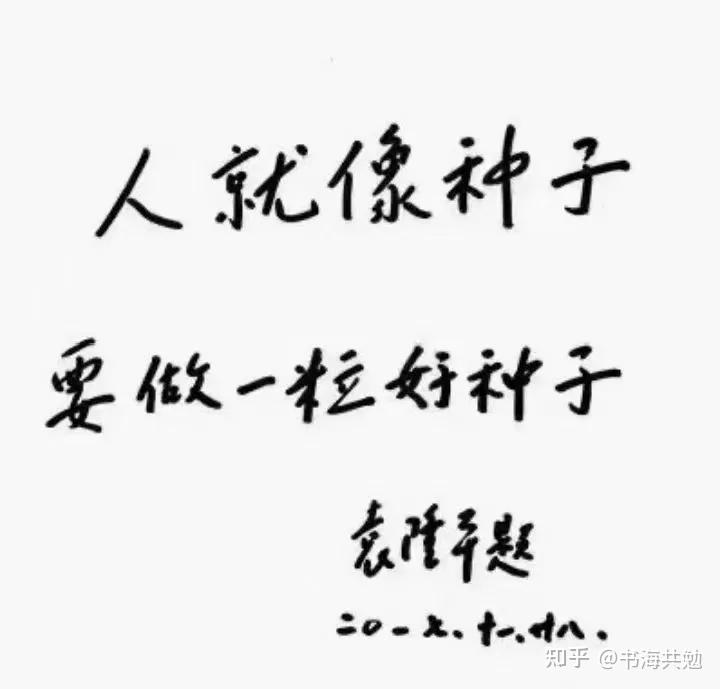 人就像种子
要做一粒好种子
袁隆平题
二〇一七、十一、廿八、
知乎 @书海共勉